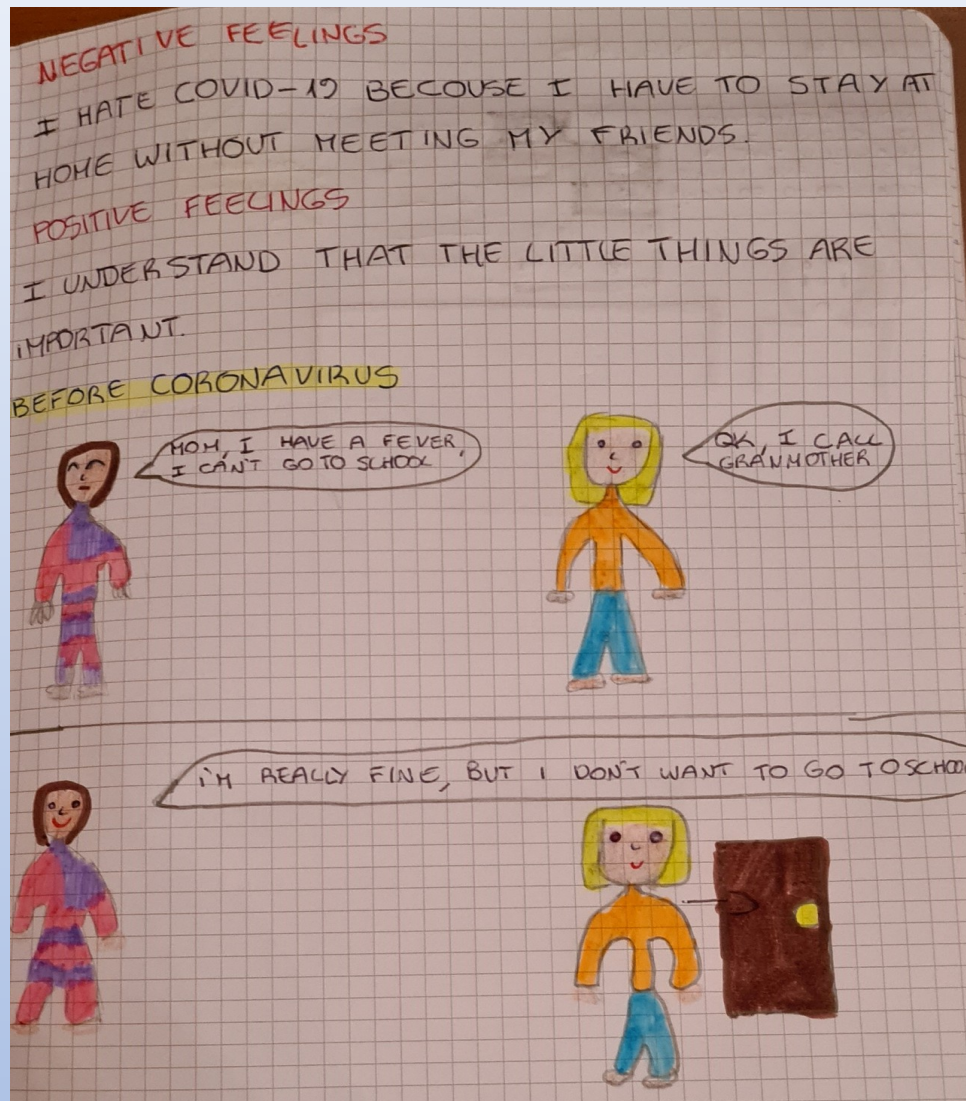 NEGATIVE FEELINGS
I HATE COVID-19 BECOUSE I HAVE TO STAY AT
HOME WITHOUT MEETING MY FRIENDS.
POSITIVE FEELINGS
I UNDERSTAND THAT THE LITTLE THINGS ARE
IMPORTANT.
BEFORE CORONAVIRUS
MOM, I HAVE A FEVER,
I CAN'T GO TO SCHOOL
OK, I CALL
GRANMOTHER
I'M REALLY FINE, BUT I DON'T WANT TO GO TO SCHOOL